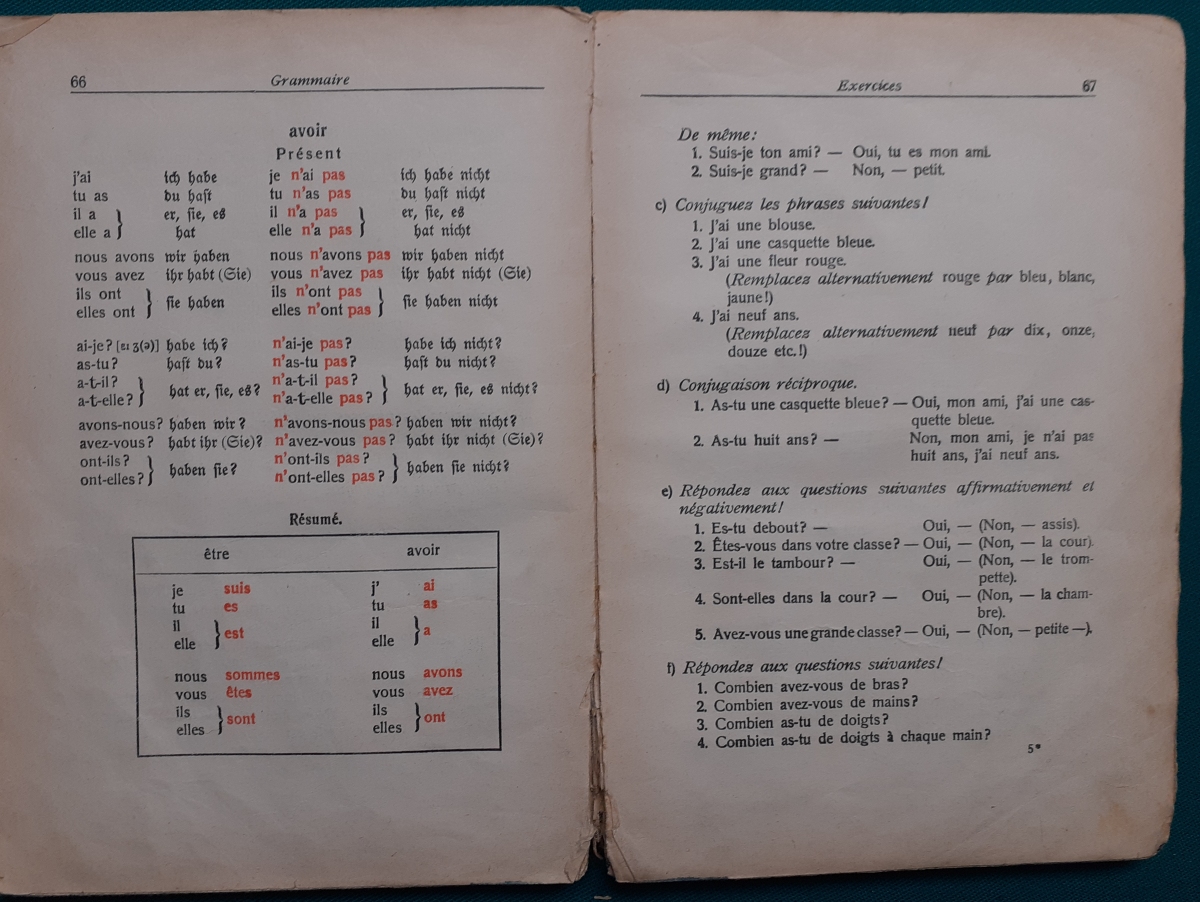 66 Grammaire
avoir
Présent
j'ai ich habe je n'ai pas ich habe nicht
tu as du hast tu n'as pas du hast nicht
il a er, sie, es il n'a pas er, sie, es
elle a hat elle n'a pas hat nicht
nous avons wir haben nous n'avons pas wir haben nicht
vous avez ihr habt (Sie) vous n'avez pas ihr habt nicht (Sie)
ils ont ils n'ont pas
sie haben sie haben nicht
elles ont elles n'ont pas
ai-je? [ɛı ʒ(ə)] habe ich? n'ai-je pas? habe ich nicht?
as-tu? hast du? n'as-tu pas? hast du nicht?
a-t-il? n'a-t-il pas?
hat er, sie, es? hat er, sie, es nicht?
a-t-elle? n'a-t-elle pas?
avons-nous? haben wir? n'avons-nous pas? haben wir nicht?
avez-vous? habt ihr (Sie)? n'avez-vous pas? habt ihr nicht (Sie)?
ont-ils? n'ont-ils pas?
haben sie? haben sie nicht?
ont-elles? n'ont-elles pas?
Résumé.
être avoir
je suis j' ai
tu es tu as
il il
est a
elle elle
nous sommes nous avons
vous êtes vous avez
ils ils
sont ont
elles elles
Exercices 67
De même:
1. Suis-je ton ami? — Oui, tu es mon ami.
2. Suis-je grand? — Non, — petit.
c) Conjuguez les phrases suivantes!
1. J'ai une blouse.
2. J'ai une casquette bleue.
3. J'ai une fleur rouge.
(Remplacez alternativement rouge par bleu, blanc,
jaune!)
4. J'ai neuf ans.
(Remplacez alternativement neuf par dix, onze,
douze etc.!)
d) Conjugaison réciproque.
1. As-tu une casquette bleue? — Oui, mon ami, j'ai une cas-
quette bleue.
2. As-tu huit ans? — Non, mon ami, je n'ai pas
huit ans, j'ai neuf ans.
e) Répondez aux questions suivantes affirmativement et
négativement!
1. Es-tu debout? — Oui, — (Non, — assis).
2. Êtes-vous dans votre classe? — Oui, — (Non, — la cour).
3. Est-il le tambour? — Oui, — (Non, — le trom-
pette).
4. Sont-elles dans la cour? — Oui, — (Non, — la cham-
bre).
5. Avez-vous une grande classe? — Oui, — (Non, — petite —).
f) Répondez aux questions suivantes!
1. Combien avez-vous de bras?
2. Combien avez-vous de mains?
3. Combien as-tu de doigts?
4. Combien as-tu de doigts à chaque main?
5*